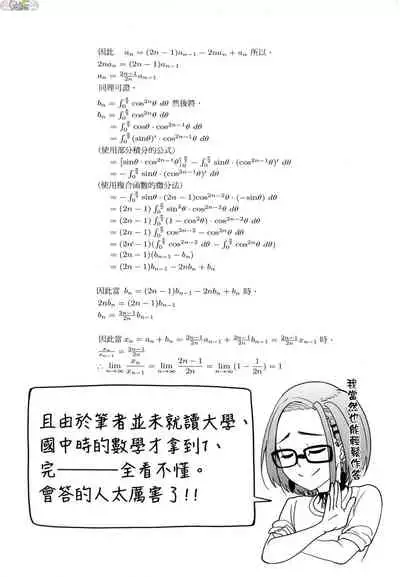 因此 aₙ = (2n − 1)aₙ₋₁ − 2naₙ + aₙ 所以,
2naₙ = (2n − 1)aₙ₋₁
aₙ = \frac{2n−1}{2n}aₙ₋₁
同理可證,
bₙ = ∫₀^{\frac{π}{2}} cos²ⁿθ dθ 然後將,
bₙ = ∫₀^{\frac{π}{2}} cos²ⁿθ dθ
= ∫₀^{\frac{π}{2}} cosθ · cos²ⁿ⁻¹θ dθ
= ∫₀^{\frac{π}{2}} (sinθ)′ · cos²ⁿ⁻¹θ dθ
(使用部分積分的公式)
= [sinθ · cos²ⁿ⁻¹θ]₀^{\frac{π}{2}} − ∫₀^{\frac{π}{2}} sinθ · (cos²ⁿ⁻¹θ)′ dθ
= −∫₀^{\frac{π}{2}} sinθ · (cos²ⁿ⁻¹θ)′ dθ
(使用複合函數的微分法)
= −∫₀^{\frac{π}{2}} sinθ · (2n − 1)cos²ⁿ⁻²θ · (−sinθ) dθ
= (2n − 1) ∫₀^{\frac{π}{2}} sin²θ · cos²ⁿ⁻²θ dθ
= (2n − 1) ∫₀^{\frac{π}{2}} (1 − cos²θ) · cos²ⁿ⁻²θ dθ
= (2n − 1) ∫₀^{\frac{π}{2}} cos²ⁿ⁻² − cos²ⁿθ dθ
= (2n − 1)(∫₀^{\frac{π}{2}} cos²ⁿ⁻² dθ − ∫₀^{\frac{π}{2}} cos²ⁿθ dθ)
= (2n − 1)(bₙ₋₁ − bₙ)
= (2n − 1)bₙ₋₁ − 2nbₙ + bₙ
因此當 bₙ = (2n − 1)bₙ₋₁ − 2nbₙ + bₙ 時,
2nbₙ = (2n − 1)bₙ₋₁
bₙ = \frac{2n−1}{2n}bₙ₋₁
因此當 xₙ = aₙ + bₙ = \frac{2n−1}{2n}aₙ₋₁ + \frac{2n−1}{2n}bₙ₋₁ = \frac{2n−1}{2n}xₙ₋₁ 時,
\frac{xₙ}{xₙ₋₁} = \frac{2n−1}{2n}
∴ lim_{n→∞} \frac{xₙ}{xₙ₋₁} = lim_{n→∞} \frac{2n − 1}{2n} = lim_{n→∞}(1 − \frac{1}{2n}) = 1
我當然也能輕鬆作答
且由於筆者並未就讀大學、
國中時的數學才拿到1、
完————全看不懂。
會答的人太厲害了!!